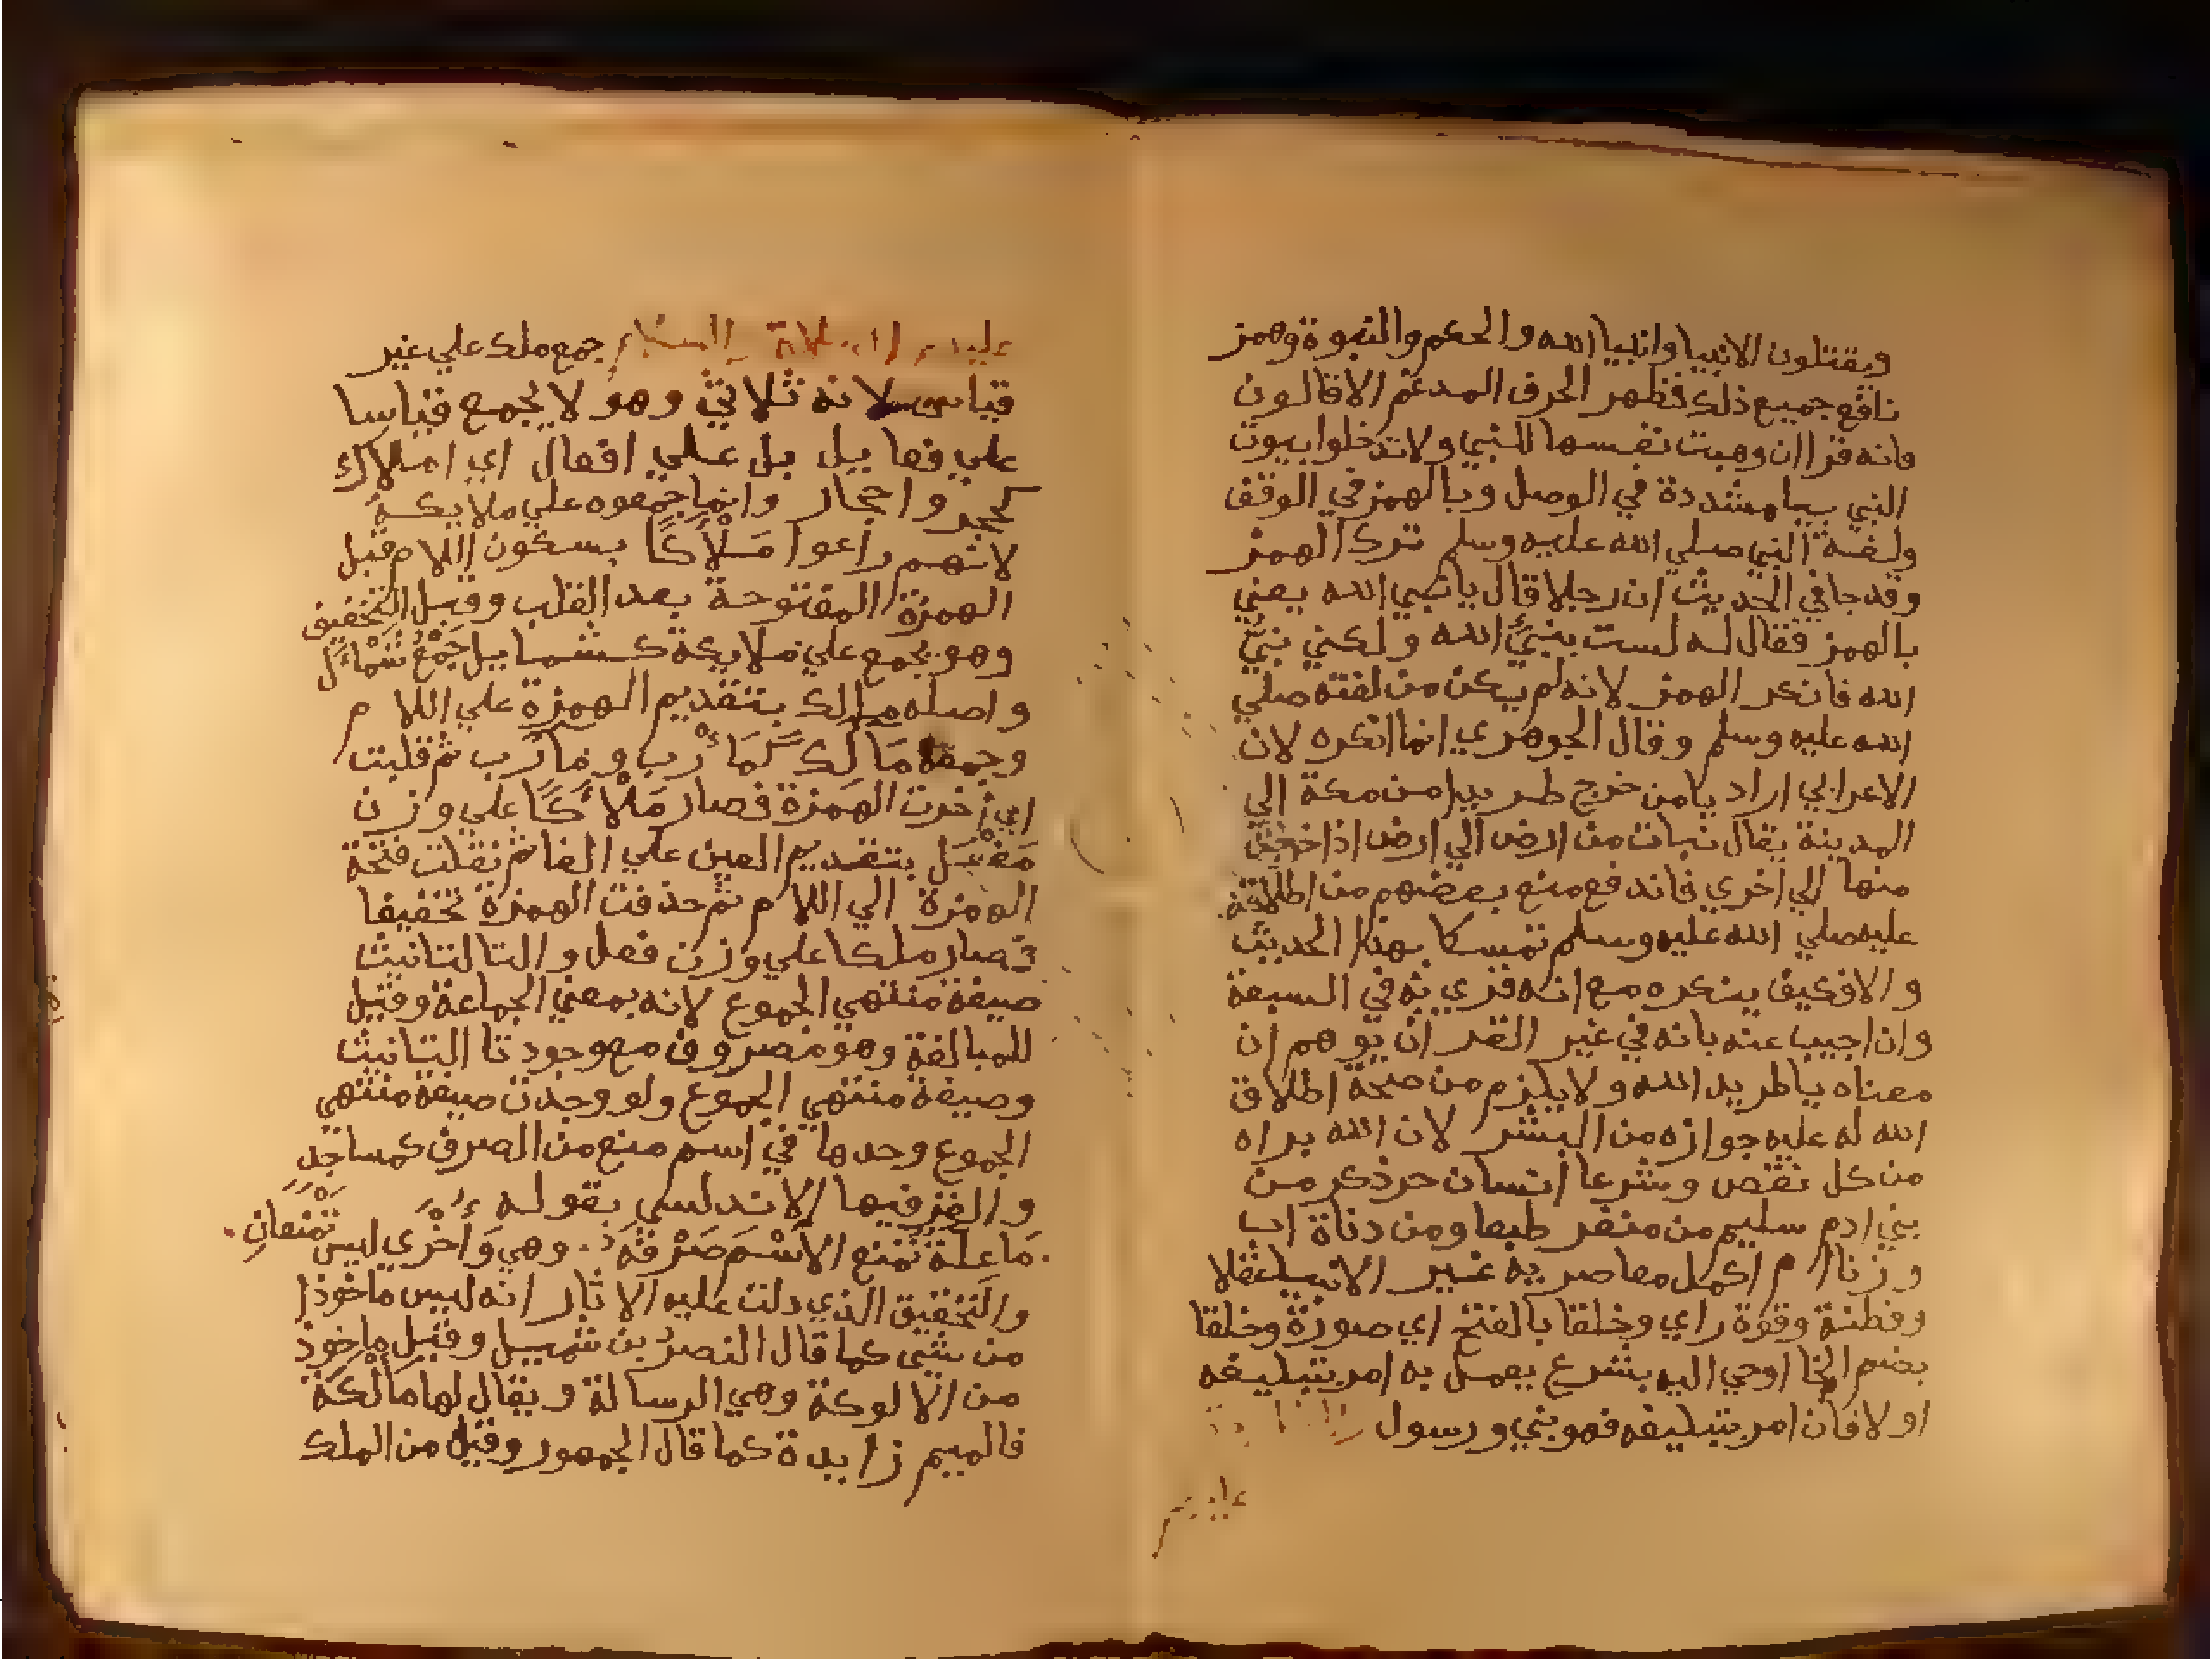 ويقتلون الانبيا وانبيا الله والحكم والنبوة وهمز
نافع جميع ذلك فظهر الحرف المدغم الا قالون
فانه قرا ان وهبت نفسها للنبي ولا تدخلوا بيوت
النبي بيا مشددة في الوصل وبالهمز في الوقف
ولغة النبي صلي الله عليه وسلم ترك الهمز
وقد جا في الحديث ان رجلا قال يا نبي الله يعني
بالهمز فقال له لست بنبيء الله ولكني نبيّ
الله فانكر الهمز لانه لم يكن من لغته صلي
الله عليه وسلم وقال الجوهري انما انكره لان
الاعرابي اراد يا من خرج طريدا من مكة الي
المدينة يقال نبات من ارض الي ارض اذا خرجت
منها الي اخري فاندفع منع بعضهم من اطلاقه
عليه صلي الله عليه وسلم تمسكا بهذا الحديث
والا فكيف ينكره مع انه قري به في السبعة
وان اجيب عنه بانه في غير القد ان توهم ان
معناه يا طريد الله ولا يلزم من صحة اطلاق
الله له عليه جوازه من البشر لان الله براه
من كل نقص وشرعا انسان حر ذكر من
بني ادم سليم من منفر طبعا ومن دناة اب
وزنا ام اكمل معاصريه غير الانبيا عقلا
وفطنة وقوة راي وخلقا بالفتح اي صورة وخلقا
بضم الخا اوحي اليه بشرع يعمل به امر بتبليغه
او لا فان امر بتبليغه فهو نبي ورسول
عليهم
عليهم الصلاة والسلام جمع ملك علي غير
قياس لانه ثلاثي وهو لا يجمع قياسا
علي فعاييل بل علي افعال اي املاك
كحجر واحجار وانما جمعوه علي ملايكة
لانهم راعوا مَلْأَكًا بسكون اللام قبل
الهمزة المفتوحة بعد القلب وقبل التخفيف
وهو يجمع علي ملايكة كشمايل جَمْعُ شَمْاَل
واصله مالك بتقديم الهمزة علي اللام
وجمعه مَالَك كَمَأْرب ومارب ثم قلبت
اي اخرت الهمزة فصار مَلْأَكًا علي وزن
مَعْفَل بتقديم العين علي الفا ثم نقلت فتحة
الهمزة الي اللام ثم حذفت الهمزة تخفيفا
فصار ملكا علي وزن فعل والتا لتانيث
صيغة منتهي الجموع لانه بمعني الجماعة وقيل
للمبالغة وهو مصروف مع وجود تا التانيث
وصيغة منتهي الجموع ولو وجدت صيغة منتهي
الجموع وحدها في اسم منع من الصرف كمساجد
والغز فيها الاندلسي بقوله
مَا عِلَّةٌ تَمْنع الاسْمَ صَرْفَهُ . وهي وَاُخْرَي ليس تَمْنَعَانِ
والتحقيق الذي دلت عليه الاثار انه ليس ماخوذا
من شي كما قال النضرُ بن شميل وقيل ماخوذ
من الالوكة وهي الرسالة ويقال لها مَأْلَكَة
فالميم زايدة كما قال الجمهور وقيل من الملك